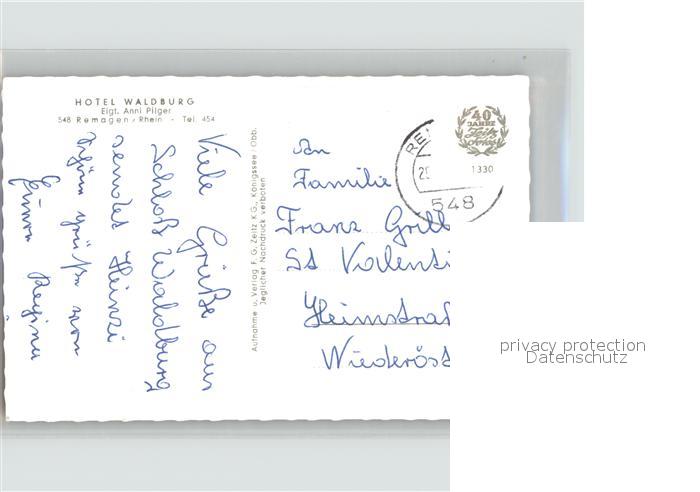 HOTEL WALDBURG
Eigt. Anni Pilger
548 Remagen/Rhein - Tel. 454
Viele Grüße aus
Schloß Waldburg
sendet Heinzi
von
Regina
Aufnahme u. Verlag F. G. Zeitz K.G., Königssee/Obb.
Jeglicher Nachdruck verboten
40
JAHRE
Zeitz
Fotos
RE
1330
548
An
Familie
Franz Grill
St Valenti
Heimstraß
Niederöst
privacy protection
Datenschutz